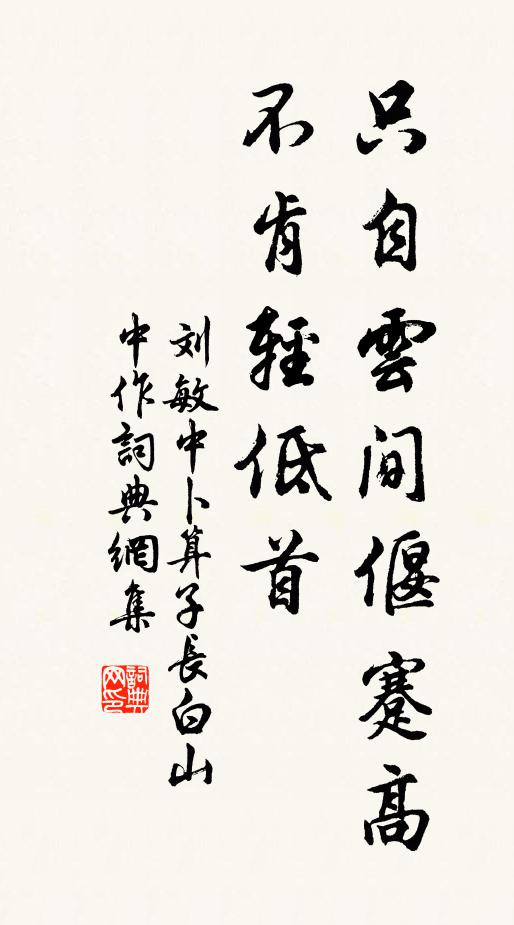 只自雲間偃蹇高
不肯輕低首
刘敏中卜算子長白山
中作詞典網集
詞典
网印